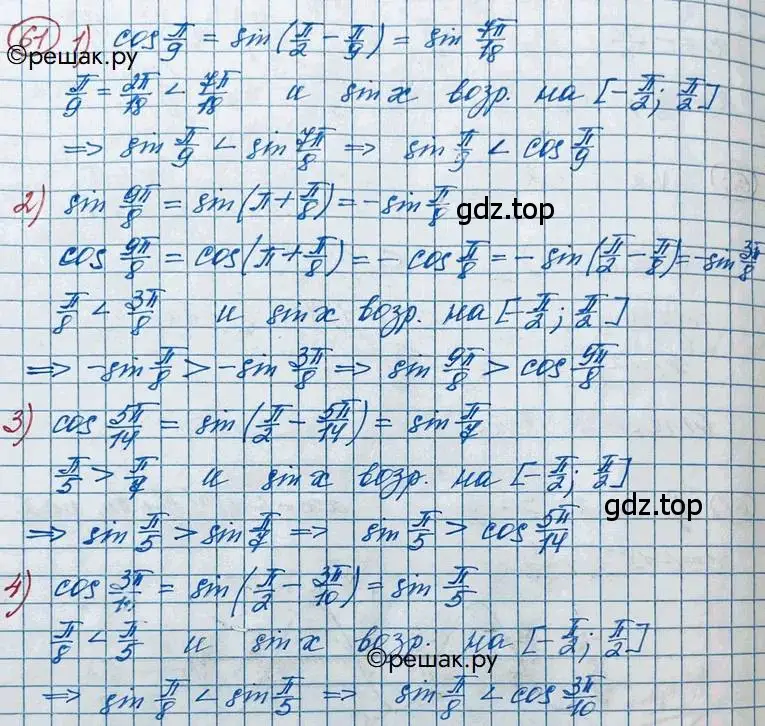 61 1) cos π/9 = sin(π/2 − π/9) = sin 7π/18
©решак.ру
π/9 = 2π/18 < 7π/18 и sin x возр. на [−π/2; π/2]
=> sin π/9 < sin 7π/8 => sin π/9 < cos π/9
2) sin 9π/8 = sin(π + π/8) = −sin π/8
gdz.top
cos 9π/8 = cos(π + π/8) = − cos π/8 = − sin(π/2 − π/8) = −sin 3π/8
π/8 < 3π/8 и sin x возр. на [−π/2; π/2]
=> −sin π/8 > −sin 3π/8 => sin 9π/8 > cos 9π/8
3) cos 5π/14 = sin(π/2 − 5π/14) = sin π/7
π/5 > π/7 и sin x возр. на [−π/2; π/2]
gdz.top
=> sin π/5 > sin π/7 => sin π/5 > cos 5π/14
4) cos 3π/10 = sin(π/2 − 3π/10) = sin π/5
π/8 < π/5 и sin x возр. на [−π/2; π/2]
©решак.ру
=> sin π/8 < sin π/5 => sin π/8 < cos 3π/10